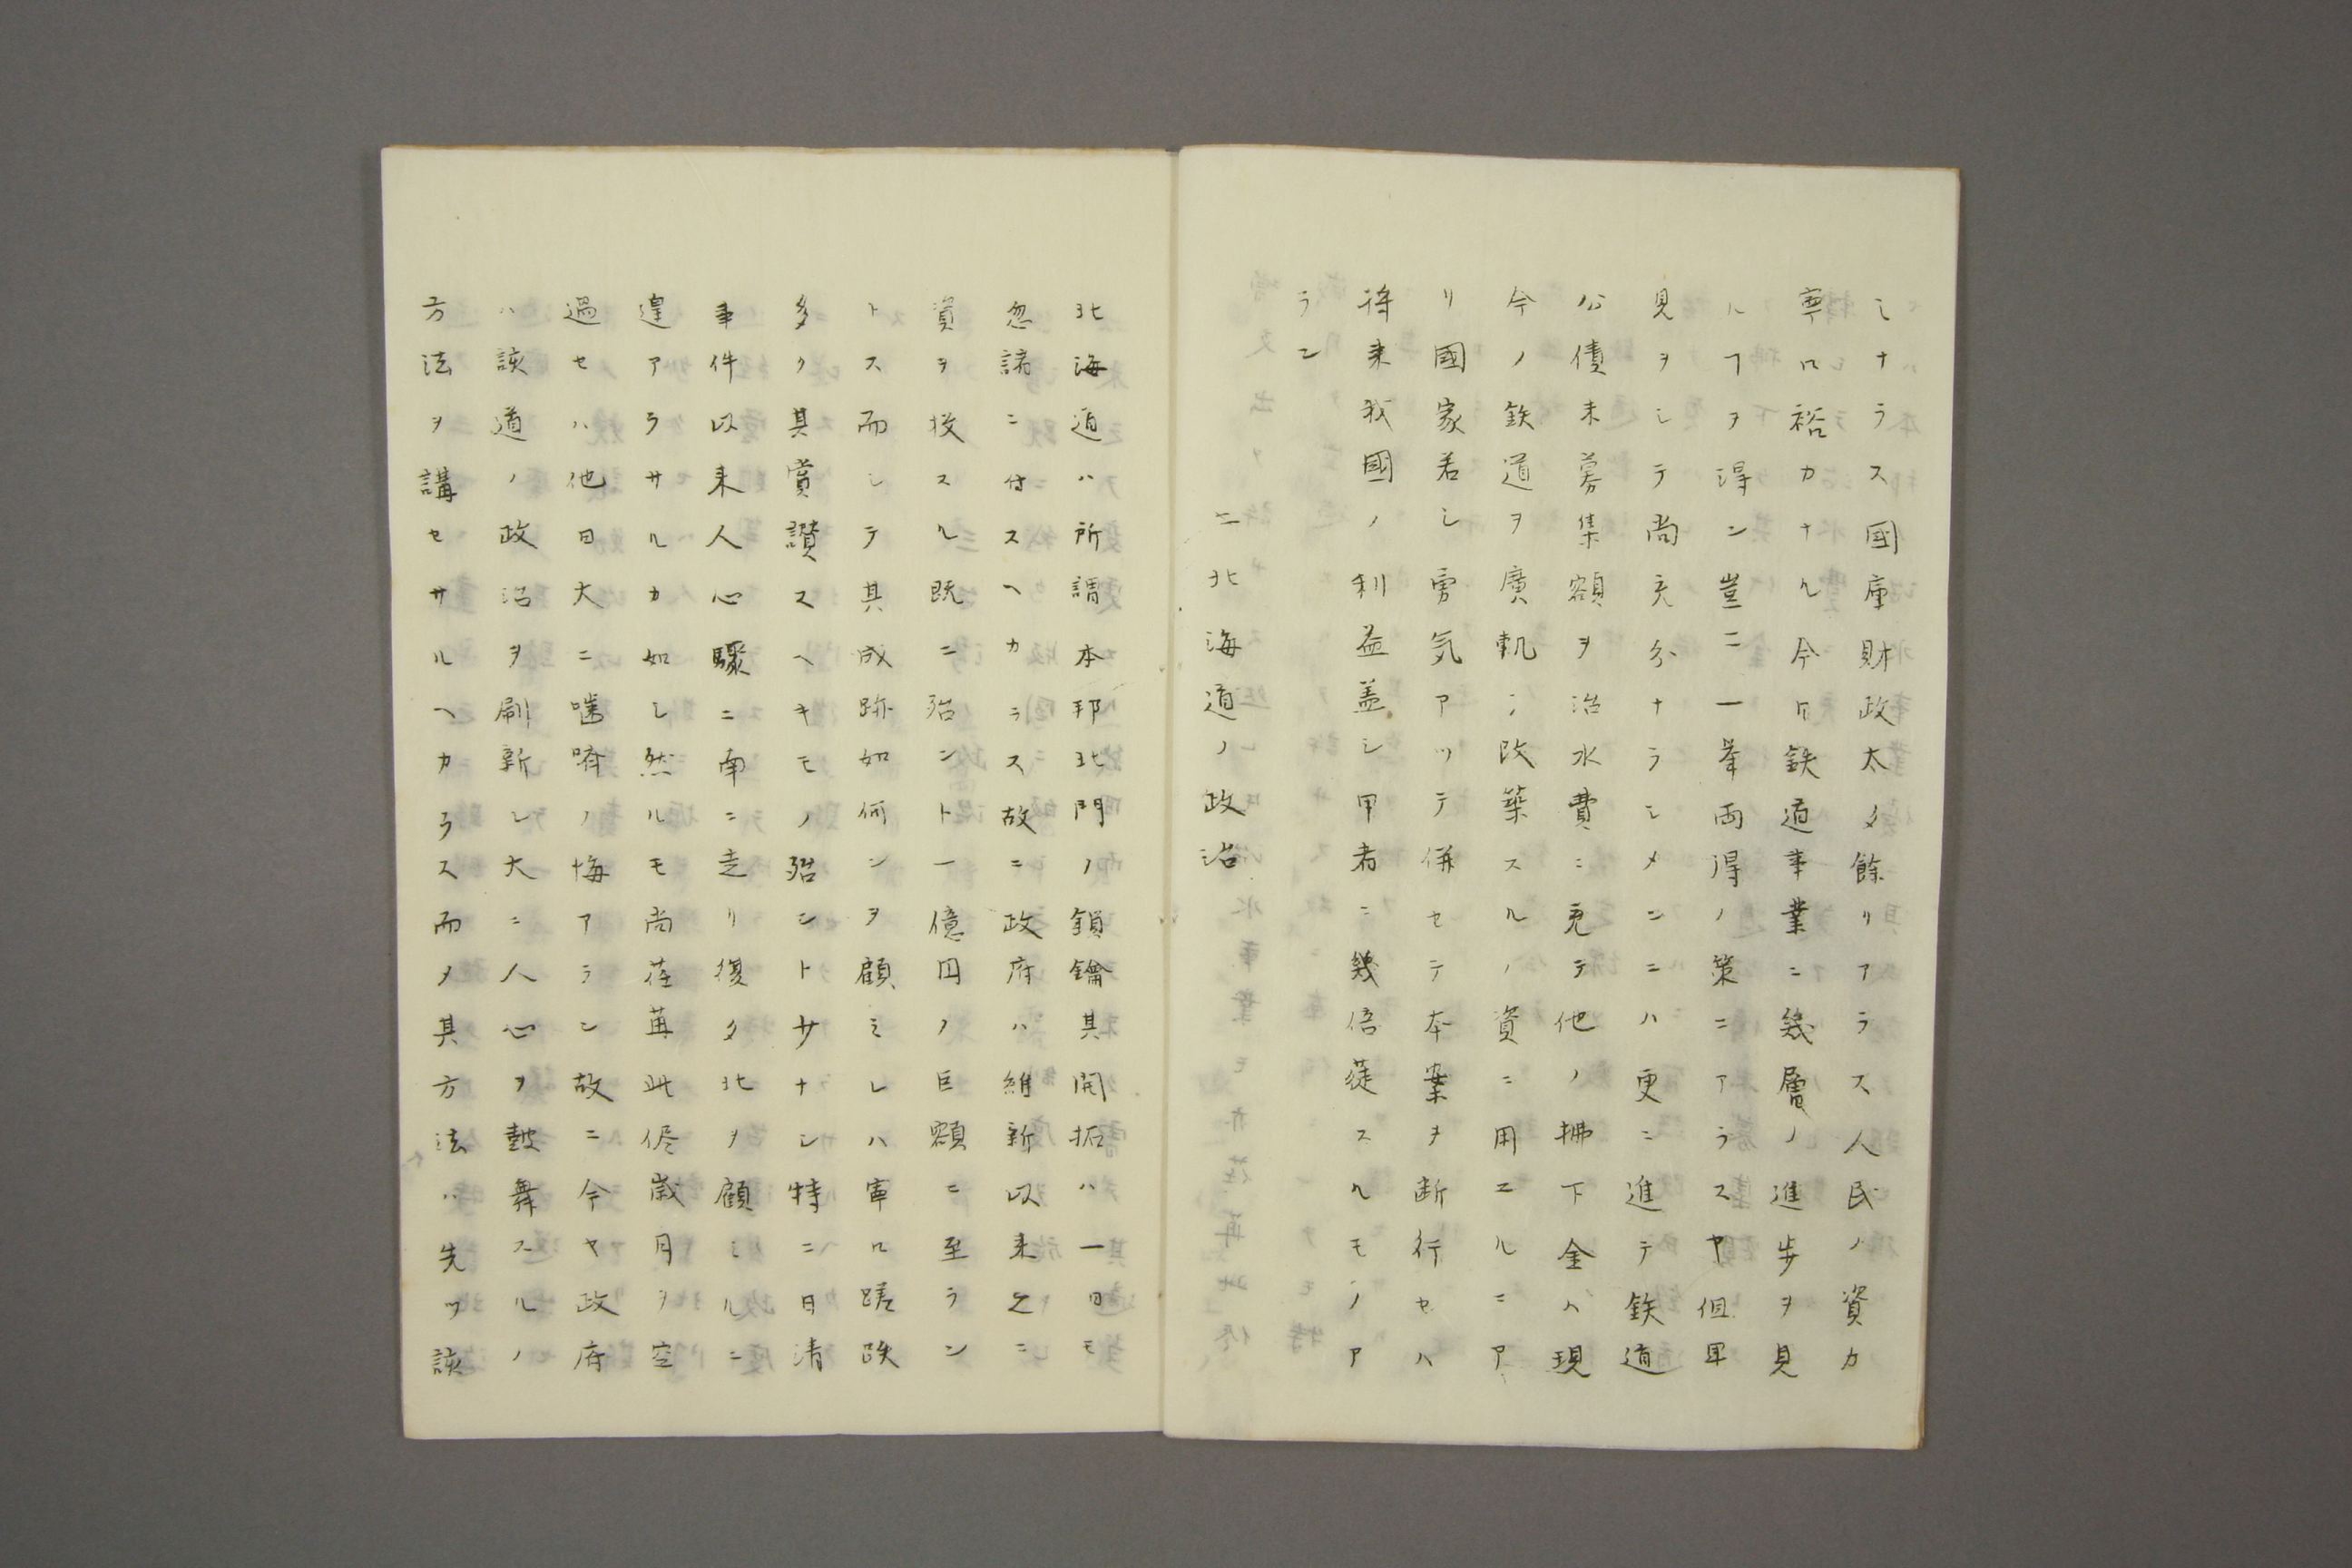 ミナラス國庫財政太タ餘リアラス人民ノ資力
寧ロ裕カナル今日鉄道事業ニ幾層ノ進歩ヲ見
ルヿヲ得ン豈ニ一挙両得ノ策ニアラスヤ但単
見ヲシテ尚充分ナラシメンニハ更ニ進テ鉄道
公債未募集額ヲ治水費ニ充テ他ノ拂下金ハ現
今ノ鉄道ヲ廣軌ニ改築スルノ資ニ用エルニア
リ國家若シ勇気アツテ併セテ本案ヲ断行セハ
将来我國ノ利益蓋シ甲者ニ幾倍蓰スルモノア
ラン
二北海道ノ政治
北海道ハ所謂本邦北門ノ鎖鑰其開拓ハ一日モ
忽諸ニ付スヘカラス故ニ政府ハ維新以来之ニ
資ヲ投スル既ニ殆ント一億円ノ巨額ニ至ラン
トス而シテ其成跡如何ンヲ顧ミレハ寧ロ蹉跌
多ク其賞讃スヘキモノ殆ントサナシ特ニ日清
事件以来人心驟ニ南ニ走リ復タ北ヲ顧ミルニ
遑アラサルカ如シ然ルモ尚荏苒此侭歳月ヲ空
過セハ他日大ニ噬臍ノ悔アラン故ニ今ヤ政府
ハ該道ノ政治ヲ刷新シ大ニ人心ヲ鼓舞スルノ
方法ヲ講セサルヘカラス而メ其方法ハ先ツ該